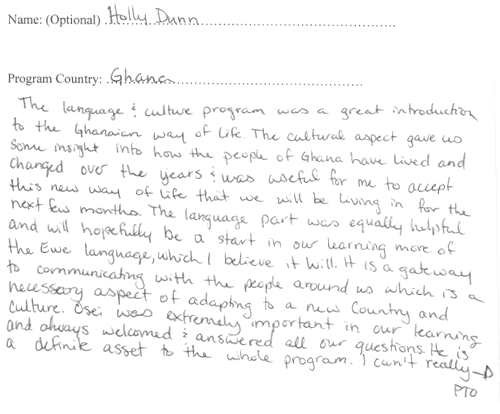 Name: (Optional) Holly Dunn
Program Country: Ghana
The language & culture program was a great introduction
to the Ghanaian way of life. The cultural aspect gave us
some insight into how the people of Ghana have lived and
changed over the years & was useful for me to accept
this new way of life that we will be living in for the
next few months. The language part was equally helpful
and will hopefully be a start in our learning more of
the Ewe language, which I believe it will. It is a gateway
to communicating with the people around us which is a
necessary aspect of adapting to a new Country and
culture. Osei was extremely important in our learning
and always welcomed & answered all our questions. He is
a definite asset to the whole program. I can't really →
PTO